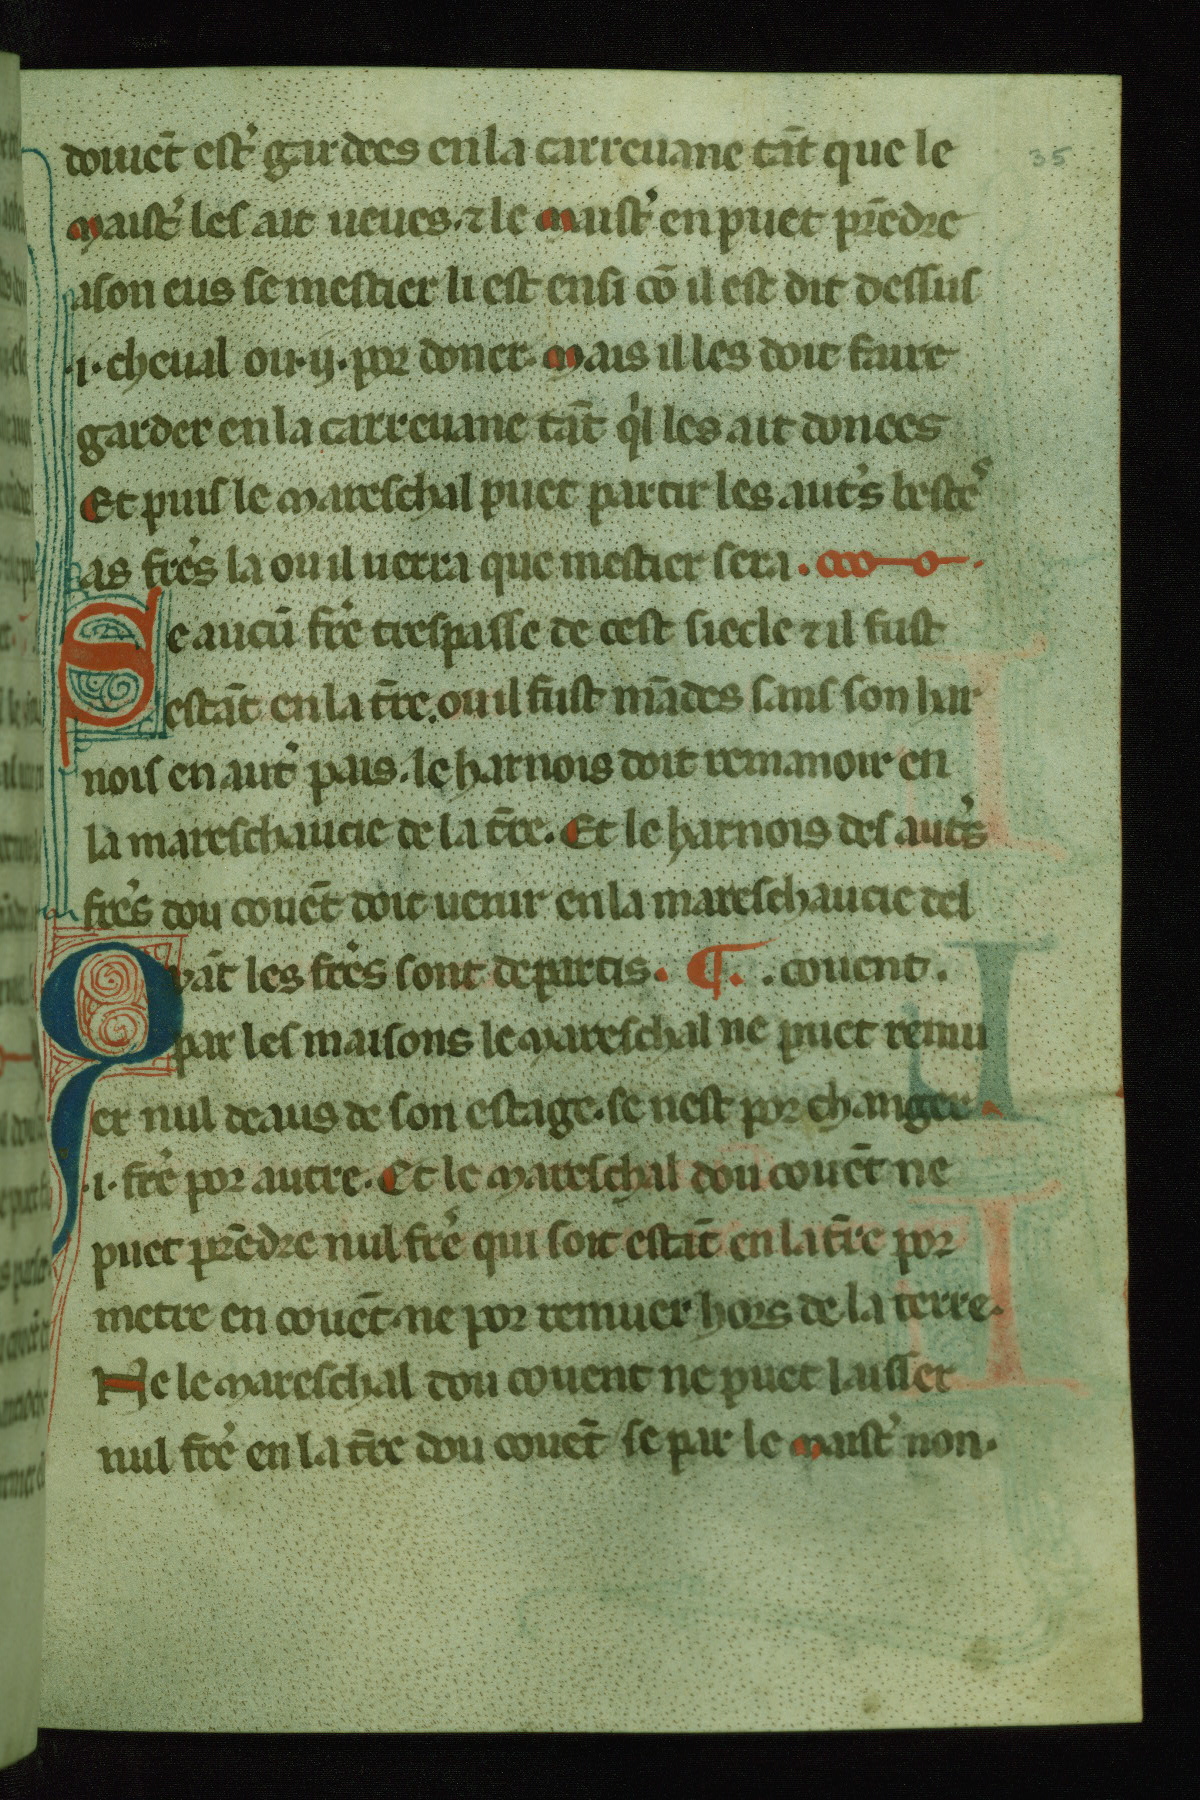 35
douuēt estr̕ gardees en la carreuane tāt que le
maistr̕ les ait ueues. ⁊ le maistr̕ en puet prēdre
a son eus se mestier li est ensi cō il est dit dessus
.i. cheual ou .ij. por doner. mais il les doit faire
garder en la carreuane tāt q̕l les ait donees
Et puis le mareschal puet partir les autr̕s besteᷤ
as frēs la ou il uerra que mestier sera.
Se aucū frē trespasse de cest siecle ⁊ il fust
estāt en la tr̄e. ou il fust mādes sans son har
nois en autr̕ pais. le harnois doit remanoir en
la mareschaucie de la tr̄e. Et le harnois des autr̕s
frēs dou couēt doit uenir en la mareschaucie del
Qvāt les frēs sont departis. ¶. . couent.
par les maisons le mareschal ne puet remu
er nul deaus de son estage. se nest por changer
.i. frē por autre. Et le mareschal dou couēt ne
puet prēdre nul frē qui soit estāt en la tr̄e por
metre en couēt. ne por remuer hors de la terre.
Ne le mareschal dou couent ne puet laisser
nul frē en la tr̄e dou couēt se par le maistr̕ non.